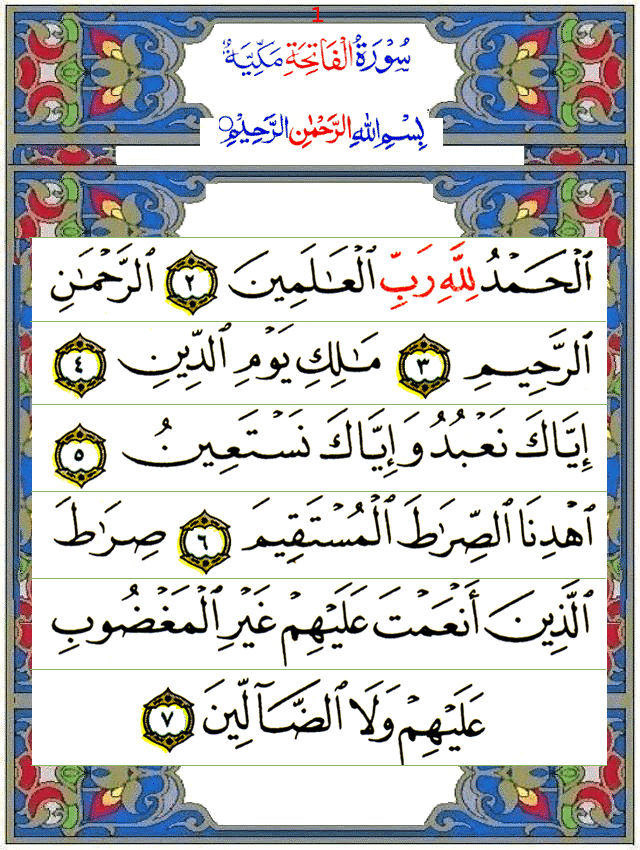 1
سُوْرَةُ الْفَاتِحَةِ مَكِّيَّةٌ
بِسْمِ اللهِ الرَّحْمٰنِ الرَّحِيْمِ
ٱلْحَمْدُ لِلَّهِ رَبِّ ٱلْعَـٰلَمِينَ ٢ ٱلرَّحْمَـٰنِ
ٱلرَّحِيمِ ٣ مَـٰلِكِ يَوْمِ ٱلدِّينِ ٤
إِيَّاكَ نَعْبُدُ وَإِيَّاكَ نَسْتَعِينُ ٥
ٱهْدِنَا ٱلصِّرَٰطَ ٱلْمُسْتَقِيمَ ٦ صِرَٰطَ
ٱلَّذِينَ أَنْعَمْتَ عَلَيْهِمْ غَيْرِ ٱلْمَغْضُوبِ
عَلَيْهِمْ وَلَا ٱلضَّآلِّينَ ٧